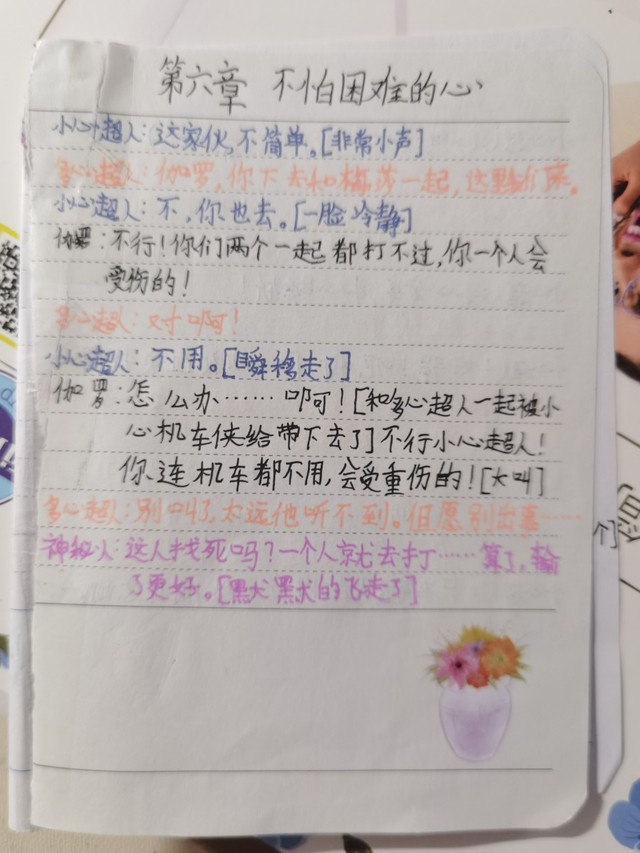 第六章 不怕困难的心
小心超人:这家伙,不简单。[非常小声]
多心超人:伽罗,你下去和一起,这里
小心超人:不,你也去。[一脸冷静]
伽罗:不行!你们两个一起都打不过,你一个人会
受伤的!
多心超人:对啊!
小心超人:不用。[瞬移走了]
伽罗:怎么办……啊![和多心超人一起被小
心机车侠给带下去了]不行小心超人!
你连机车都不用,会受重伤的![大叫]
多心超人:别叫了,太远他听不到。但愿别出
神秘人:这人找死吗?一个人就去打……算了,输
了更好。[默默的飞走了]
个]